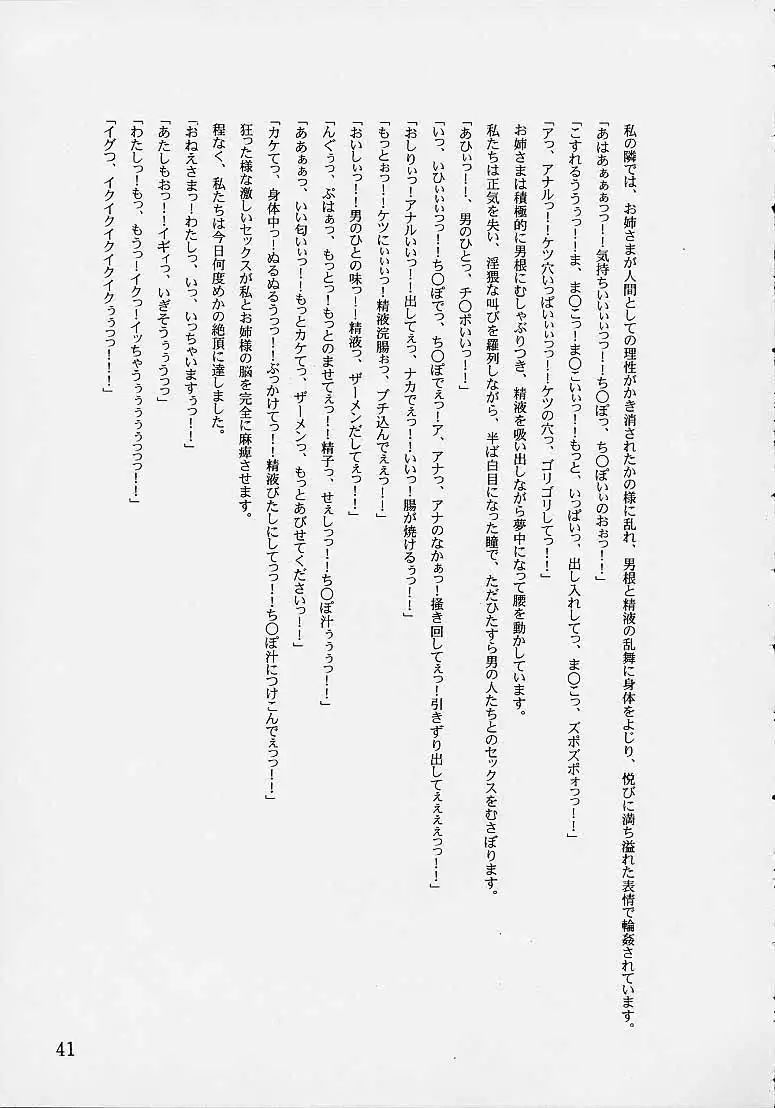 私の隣では、お姉さまが人間としての理性がかき消されたかの様に乱れ、男根と精液の乱舞に身体をよじり、悦びに満ち溢れた表情で輪姦されています。
「あはあぁぁぁっっ！！気持ちいいいぃぃっっ！！ち○ぽっ、ち○ぽいぃのおぉっ！！」
「こすれるううぅっ！！ま、ま○こっ！ま○こいぃっ！！もっと、いっぱいっ、出し入れしてっ、ま○こっ、ズポズポォっっ！！」
「アっ、アナルっ！！ケツ穴いっぱいぃぃっっ！！ケツの穴っ、ゴリゴリしてっ！！」
お姉さまは積極的に男根にむしゃぶりつき、精液を吸い出しながら夢中になって腰を動かしています。
私たちは正気を失い、淫猥な叫びを羅列しながら、半ば白目になった瞳で、ただひたすら男の人たちとのセックスをむさぼります。
「あひぃっ！！、男のひとっ、チ○ポいいっ！！」
「いっ、いひぃぃぃっっ！！ち○ぽでっ、ち○ぽでぇっ！ア、アナっ、アナのなかぁっ！掻き回してぇっ！引きずり出してえぇぇぇっっ！！」
「おしりぃっ！アナルいいっ！！出してぇっ、ナカでぇっ！！いいっ！腸が焼けるぅっ！！」
「もっとぉっ！！ケツにぃぃぃっ！精液浣腸ぉっ、ブチ込んでぇぇっ！！」
「おいしいっ！！男のひとの味っ！！精液っ、ザーメンだしてぇっ！！」
「んぐぅっ、ぷはぁっ、もっとっ！もっとのませてえぇっ！！精子っ、せぇしっっ！！ち○ぽ汁ぅぅぅっ！！」
「ああぁぁっ、いい匂いぃっ！！もっとカケてっ、ザーメンっ、もっとあびせてくださいっ！！」
「カケてっ、身体中っ！ぬるぬるうっっ！！ぶっかけてっ！！精液びたしにしてっっ！！ち○ぽ汁につけこんでえっっ！！」
狂った様な激しいセックスが私とお姉様の脳を完全に麻痺させます。
程なく、私たちは今日何度めかの絶頂に達しました。
「おねえさまっ！わたしっ、いっ、いっちゃいますぅっ！！」
「あたしもおっ！！イギィっ、いぎそうぅぅうっっ」
「わたしっ！もっ、もうっ！イクっ！イッちゃうぅぅぅぅっっっ！！」
「イグっ、イクイクイクイクイクぅぅっっ！！！」
41